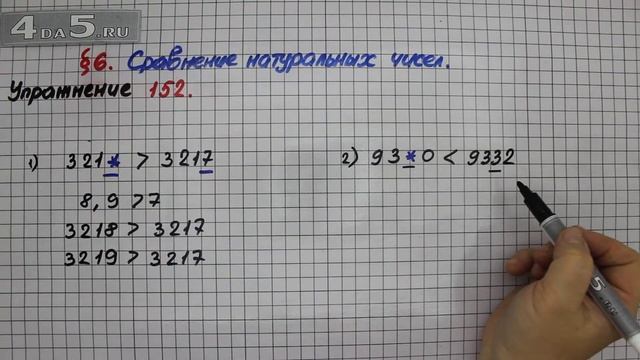 4DA5.RU
§6. Сравнение натуральных чисел.
Упражнение 152.
1) 321* > 3217
8, 9 > 7
3218 > 3217
3219 > 3217
2) 93*0 < 9332